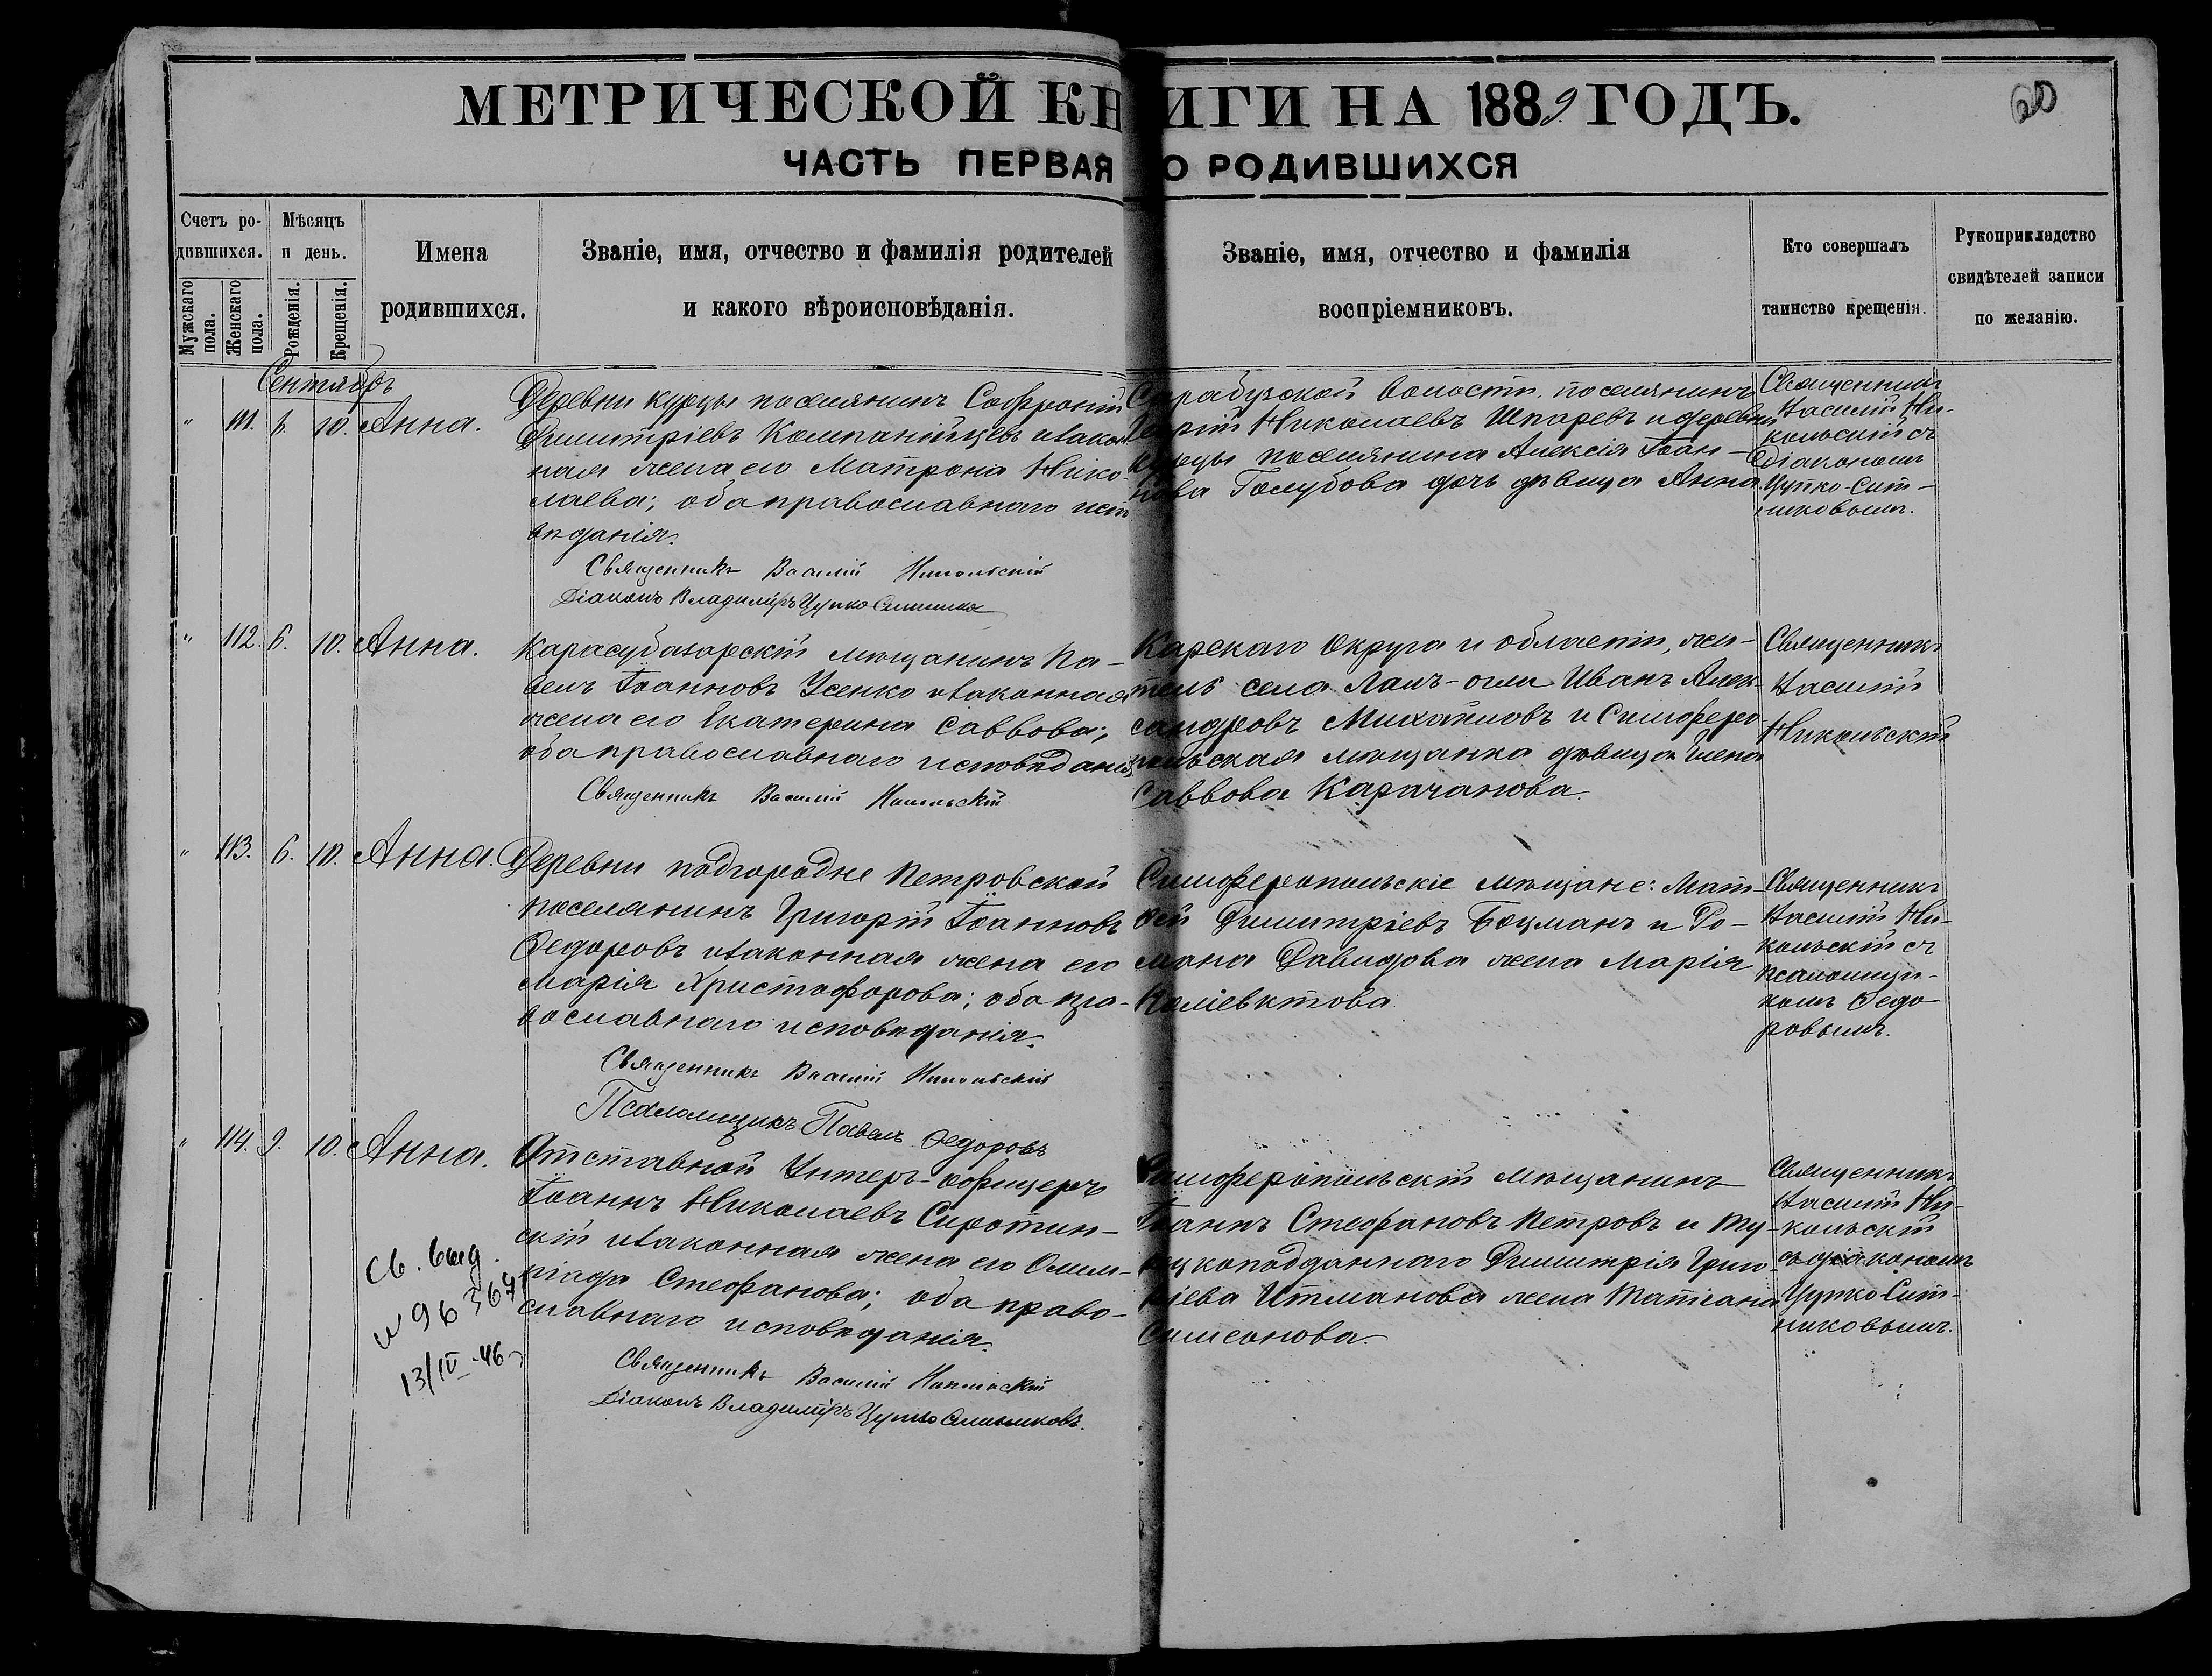 МЕТРИЧЕСКОЙ КНИГИ НА 1889 ГОДЪ.
60
ЧАСТЬ ПЕРВАЯ О РОДИВШИХСЯ
Счетъ ро-
дившихся.
Мужскаго
пола.
Женскаго
пола.
Мѣсяцъ
и день.
Рожденія.
Крещенія.
Имена
родившихся.
Званіе, имя, отчество и фамилія родителей
и какого вѣроисповѣданія.
Званіе, имя, отчество и фамилія
воспріемниковъ.
Кто совершалъ
таинство крещенія.
Рукоприкладство
свидѣтелей записи
по желанію.
Сентябрь
" 111. 6. 10. Анна.
Деревни Курцы поселянинъ Софроній
Димитріевъ Компанійцевъ и закон
ная жена его Матрона Нико-
лаева; оба православнаго испо
вѣданія.
Священникъ Василій Никольскій
Діаконъ Владиміръ Цупко Ситников
Сарабузской волости поселянинъ
Николаевъ Шпаревъ и деревни
Курцы поселянина Алексія Іоан-
нова Голубова дочь дѣвица Анна.
Священникъ
Василій Ни-
кольскій съ
діакономъ
Цупко-Сит-
никовымъ.
" 112. 6. 10. Анна.
Карасубазарскій мѣщанинъ Па-
велъ Іоанновъ Усенко и законная
жена его Екатерина Саввова;
оба православнаго исповѣданія
Священникъ Василій Никольскій
Карскаго Округа и области, жи-
тель села Иванъ Алек-
сандровъ Михайловъ и Симферо-
польская мѣщанка дѣвица Елена
Саввова Карачанова.
Священникъ
Василій
Никольскій
" 113. 6. 10. Анна.
Деревни подгородне Петровской
поселянинъ Григорій Іоанновъ
Ѳедоровъ и законная жена его
Марія Христофорова; оба пра-
вославнаго исповѣданія.
Священникъ Василій Никольскій
Псаломщикъ Павелъ Ѳедоровъ
Симферопольскіе мѣщане: Мат-
ѳей Димитріевъ Боцманъ и Ро-
мана Давидова жена Марія
Поліевктова
Священникъ
Василій Ни-
кольскій съ
псаломщи-
комъ Ѳедо
ровымъ.
" 114. 9. 10. Анна.
Отставной Унтеръ-офицеръ
Іоаннъ Николаевъ Сиротин-
скій и законная жена его Олим-
піада Стефанова; оба право-
славнаго исповѣданія.
Священникъ Василій Никольскій
Діаконъ Владиміръ Цупко Ситниковъ.
Симферопольскій мѣщанинъ
Іоаннъ Стефановъ Петровъ и Ту-
рецкоподданнаго Димитрія Григо-
ріева Итманова жена Татіана
Симеонова.
Священникъ
Василій Ни-
кольскій
съ діакономъ
Цупко Сит-
никовымъ.
Св. выд.
N 96364
13/IV-46